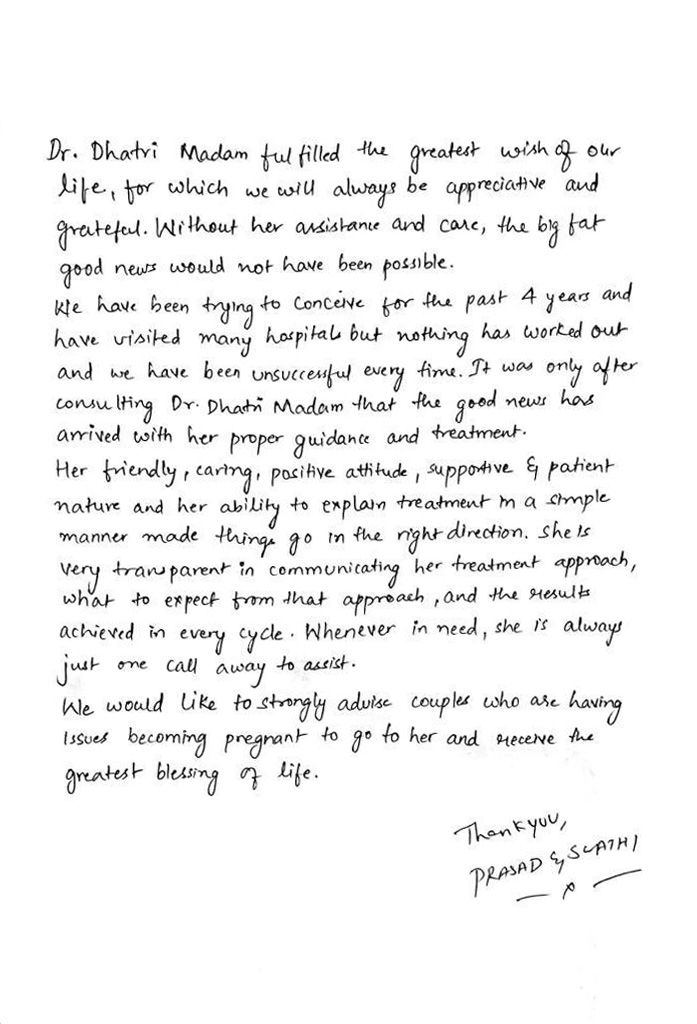 Dr. Dhatri Madam fulfilled the greatest wish of our
life, for which we will always be appreciative and
grateful. Without her assistance and care, the big fat
good news would not have been possible.
We have been trying to conceive for the past 4 years and
have visited many hospitals but nothing has worked out
and we have been unsuccessful every time. It was only after
consulting Dr. Dhatri Madam that the good news has
arrived with her proper guidance and treatment.
Her friendly, caring, positive attitude, supportive & patient
nature and her ability to explain treatment in a simple
manner made things go in the right direction. She is
very transparent in communicating her treatment approach,
what to expect from that approach, and the results
achieved in every cycle. Whenever in need, she is always
just one call away to assist.
We would like to strongly advise couples who are having
issues becoming pregnant to go to her and receive the
greatest blessing of life.
Thankyou,
PRASAD & SWATHI